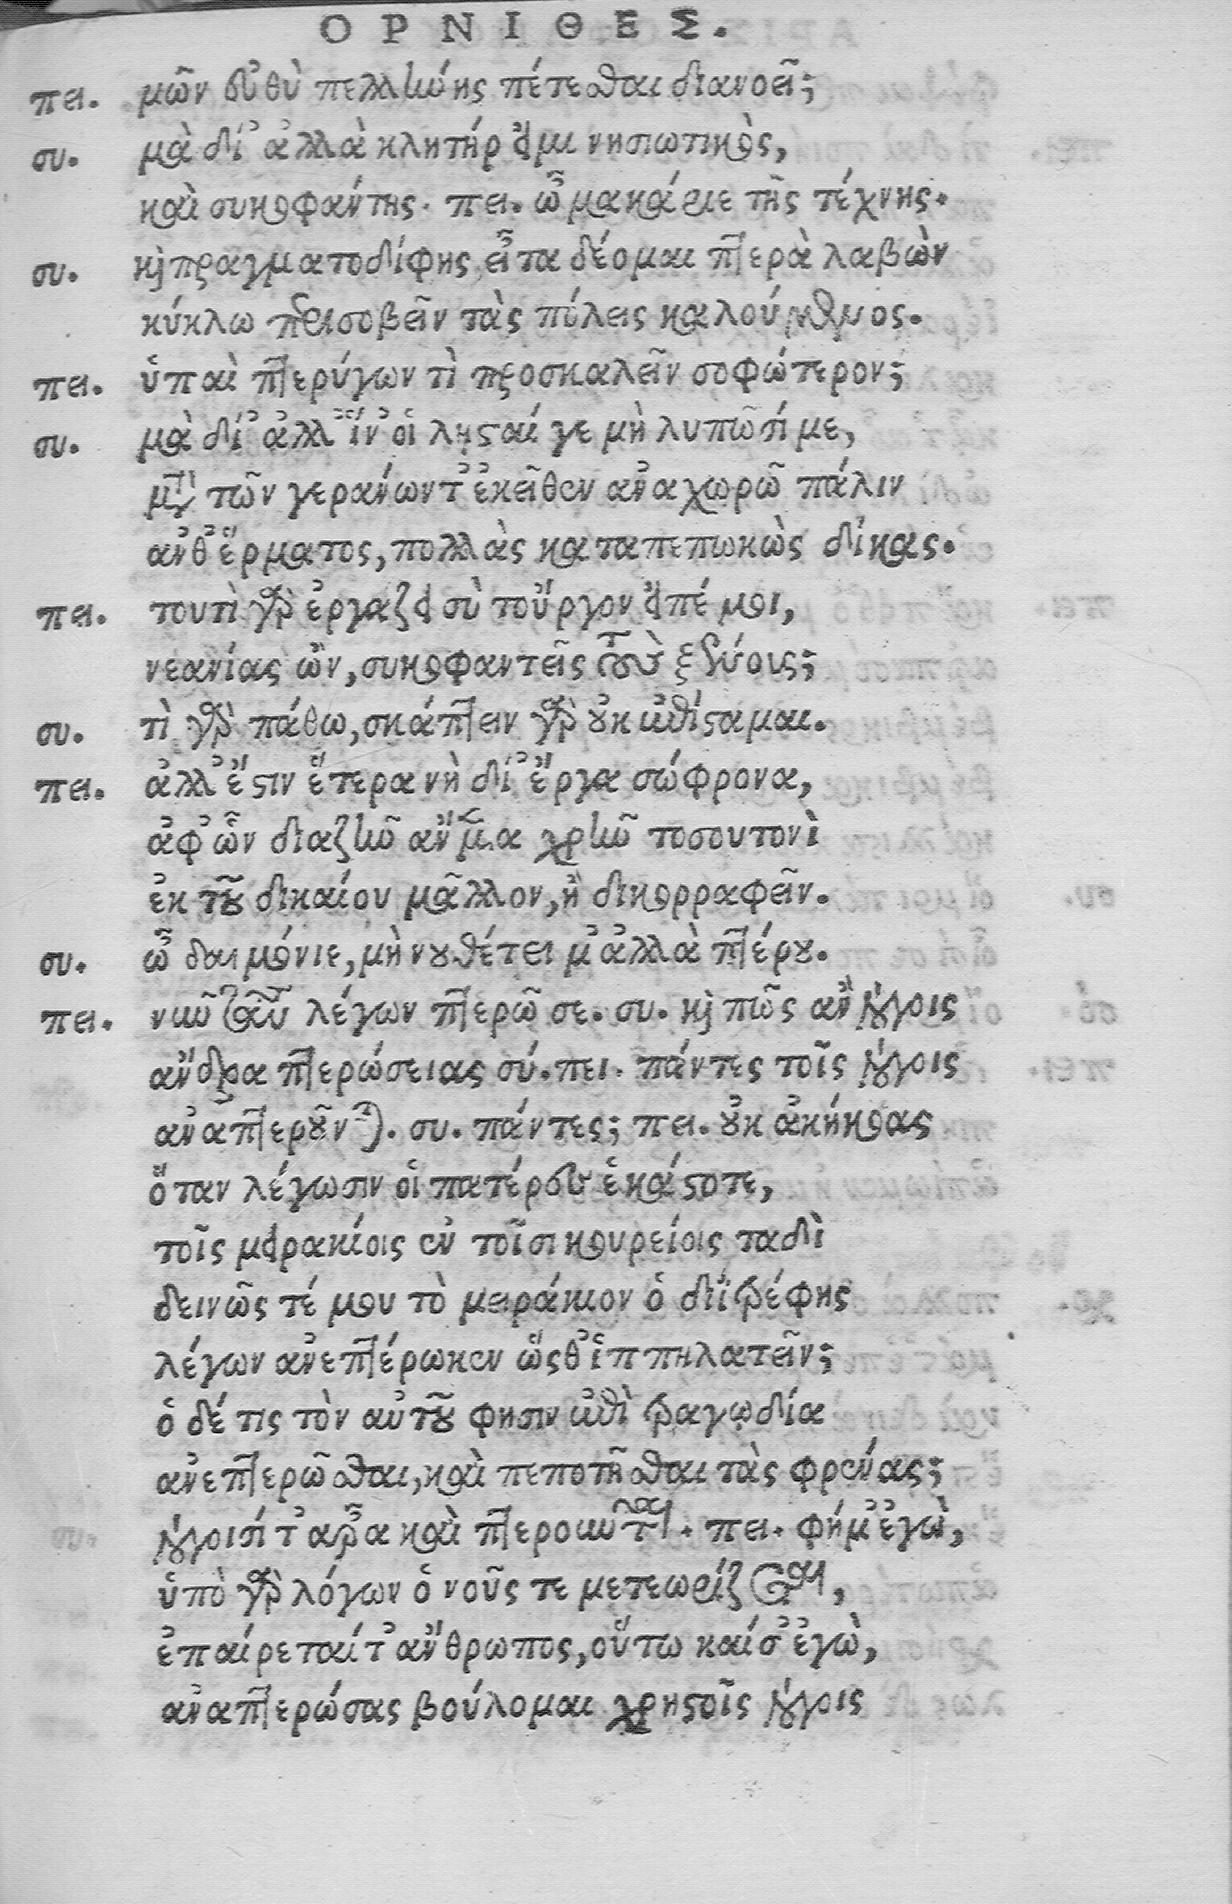 ΟΡΝΙΘΕΣ.
πει. μῶν εὐθὺ πελλήνης πέτεσθαι διανοεῖ;
συ. μὰ δί᾽ ἀλλὰ κλητήρ εἰμι νησιωτικὸς,
καὶ συκοφάντης. πει. ὦ μακάριε τῆς τέχνης.
συ. καὶ πραγματοδίφης εἶτα δέομαι πτερὰ λαβὼν
κύκλω περισοβεῖν τὰς πόλεις καλούμενος.
πει. ὑπαὶ πτερύγων τὶ προσκαλεῖν σοφώτερον;
συ. μὰ δί᾽ ἀλλ᾽ ἵν᾽ οἱ λῃσταί γε μὴ λυπῶσί με,
μετὰ τῶν γεράνων τ᾽ ἐκεῖθεν ἀναχωρῶ πάλιν
ἀνθ᾽ ἕρματος, πολλὰς καταπεπωκὼς δίκας.
πει. τουτὶ γὰρ ἐργάζει σὺ τοὔργον εἰπέ μοι,
νεανίας ὢν, συκοφαντεῖς τοὺς ξένους;
συ. τὶ γὰρ πάθω, σκάπτειν γὰρ οὐκ ἐπίσταμαι.
πει. ἀλλ᾽ ἔστιν ἕτερα νὴ δί᾽ ἔργα σώφρονα,
ἀφ᾽ ὧν διαζῆν ἄνδρα χρῆν τοσουτονὶ
ἐκ τοῦ δικαίου μᾶλλον, ἢ δικορραφεῖν.
συ. ὦ δαιμόνιε, μὴ νουθέτει μ᾽ ἀλλὰ πτέρου.
πει. νῦν τοι λέγων πτερῶ σε. συ. καὶ πῶς ἂν λόγοις
ἄνδρα πτερώσειας σύ. πει. πάντες τοῖς λόγοις
ἀναπτεροῦνται. συ. πάντες; πει. οὐκ ἀκήκοας
ὅταν λέγωσιν οἱ πατέρες ἑκάστοτε,
τοῖς μειρακίοις ἐν τοῖσι κουρείοις ταδὶ
δεινῶς τέ μου τὸ μειράκιον ὁ διϊτρέφης
λέγων ἀνεπτέρωκεν ὥσθ᾽ ἱππηλατεῖν;
ὁ δέ τις τὸν αὑτοῦ φησιν ἐπὶ τραγῳδία
ἀνεπτερῶσθαι, καὶ πεποτῆσθαι τὰς φρένας;
λόγοισί τ᾽ ἆρα καὶ πτεροῦνται. πει. φήμ᾽ ἐγὼ,
ὑπὸ γὰρ λόγων ὁ νοῦς τε μετεωρίζεται,
ἐπαίρεταί τ᾽ ἄνθρωπος, οὕτω καί σ᾽ ἐγὼ,
ἀναπτερώσας βούλομαι χρηστοῖς λόγοις